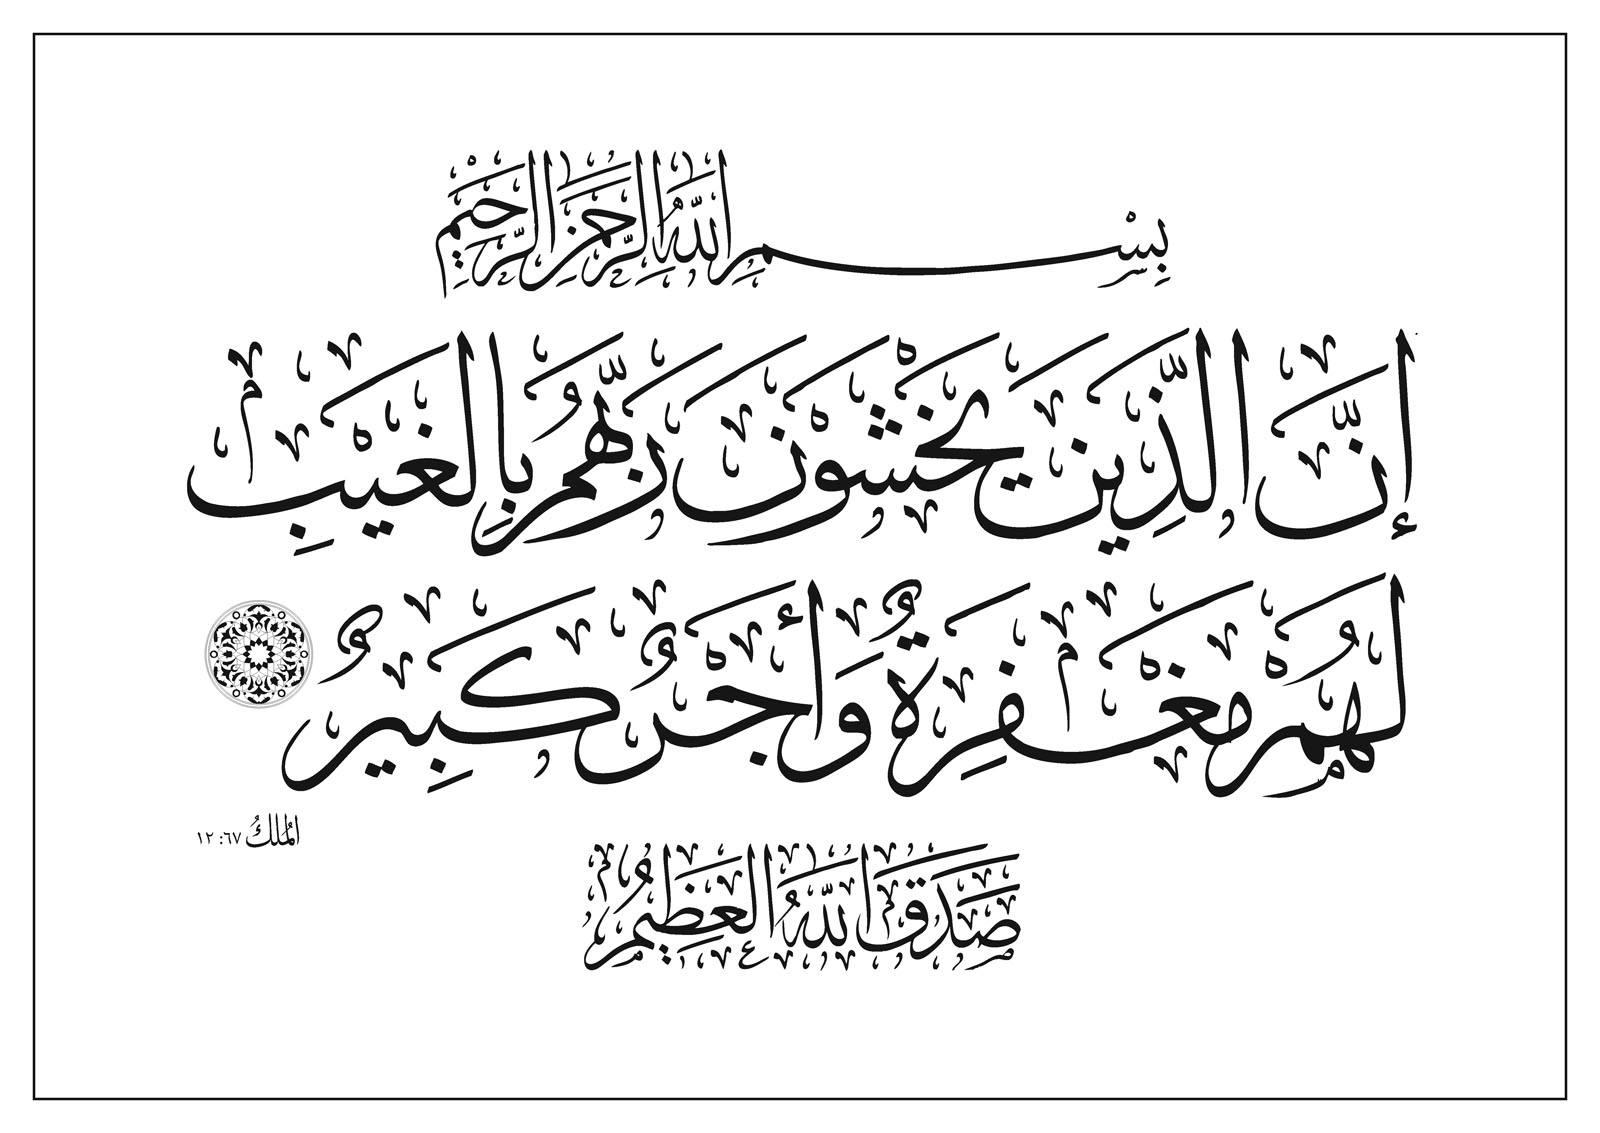 بِسْمِ اللَّهِ الرَّحْمَنِ الرَّحِيمِ
إِنَّ الَّذِينَ يَخْشَوْنَ رَبَّهُمْ بِالْغَيْبِ
لَهُمْ مَغْفِرَةٌ وَأَجْرٌ كَبِيرٌ
الْمُلْكُ ٦٧: ١٢
صَدَقَ اللَّهُ الْعَظِيمُ